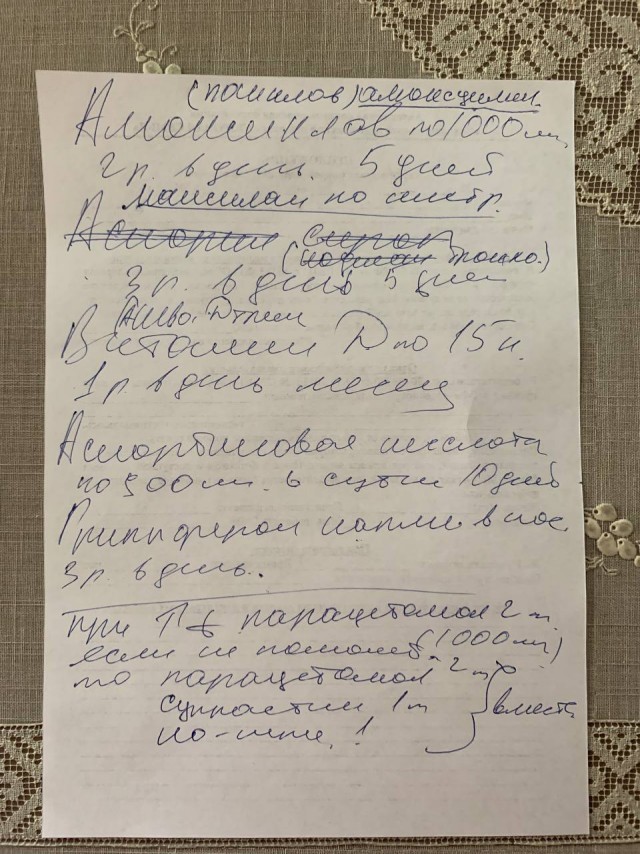 (панклав) амоксциллин
Амоксиклав по 1000 мг
2 р. в день. 5 дней
по инстр.
Аскорил сироп
3 р. в день 5 дней
(Аква Детрим
Витамин D по 15 к.
1 р в день месяц
Аскорбиновая кислота
по 500 мг. в сутки 10 дней.
Гриппферон капли в нос.
3 р. в день.
при Т парацетамол 2 т
(1000 мг)
если не помогает
то парацетамол 2 т
супрастин 1 т
но-шпа
вместе